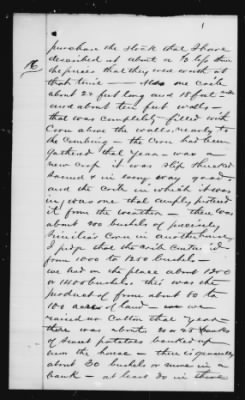 purchase the stock that I have
described at about a ⅓ less than
the prices that they were worth at
that time — Also one crib
about 24 feet long and 18 feet
and about ten feet walls —
that was completely filled with
Corn above the walls, nearly to
the Combing — the Corn had been
gathered that year — was a
new crop it was slip shucked
sound & in every way good,
and the crib in which it was
in, was one that amply protected
it from the weather — there was
about 200 bushels of precisely
similar Corn in another house,
I judge that the crib contained
from 1000 to 1200 bushels —
we had on the place about 1200
or 1400 bushels this was the
product of from about 80 to
100 acres of land — we
raised no Cotton that year —
there was about 20 or 25 banks
of Sweet potatoes banked up
near the house — there is generally
about 30 bushels or more in a
bank — at least 30 in these